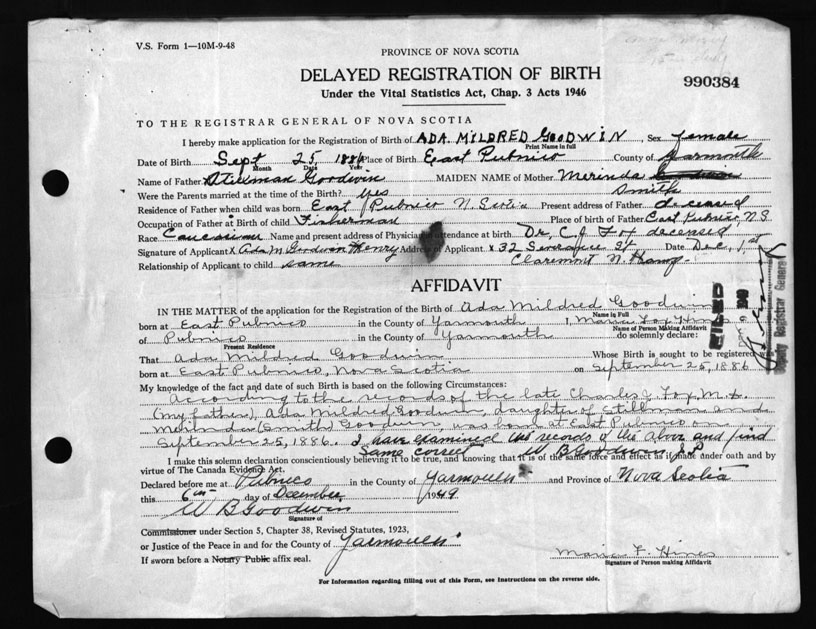 V.S. Form 1—10M-9-48
PROVINCE OF NOVA SCOTIA
DELAYED REGISTRATION OF BIRTH
990384
Under the Vital Statistics Act, Chap. 3 Acts 1946
TO THE REGISTRAR GENERAL OF NOVA SCOTIA
I hereby make application for the Registration of Birth of ADA MILDRED GOODWIN, Sex female
Print Name in full
Date of Birth Sept 25, 1886 Place of Birth East Pubnico County of Yarmouth
Month Date Year
Name of Father Stillman Goodwin MAIDEN NAME of Mother Merinda Goodwin
Smith
Were the Parents married at the time of the Birth? yes
Residence of Father when child was born East Pubnico N. Scotia Present address of Father deceased
Occupation of Father at Birth of child Fisherman Place of birth of Father East Pubnico, N.S
Race Caucasian Name and present address of Physician attendance at birth Dr. C J Fox deceased
Signature of Applicant X Ada M. Goodwin Henry Address of Applicant x 32 Severance St Date Dec, 1st
Relationship of Applicant to child same Claremont N. Hamp.
AFFIDAVIT
IN THE MATTER of the application for the Registration of the Birth of Ada Mildred Goodwin
Name in Full
born at East Pubnico in the County of Yarmouth, Marie Fox Hines
Name of Person Making Affidavit
of Pubnico in the County of Yarmouth do solemnly declare:
Present Residence
That Ada Mildred Goodwin Whose Birth is sought to be registered
born at East Pubnico, Nova Scotia on September 25, 1886
FILED
Deputy Registrar General
My knowledge of the fact and date of such Birth is based on the following Circumstances:
According to the records of the late Charles J. Fox, M.D.
(my father), Ada Mildred Goodwin, daughter of Stillman and
Merinda (Smith) Goodwin, was born at East Pubnico on
September 25, 1886. I have examined the records of the above and find
Same correct W. B Goodwin J.P
I make this solemn declaration conscientiously believing it to be true, and knowing that it is of the same force and effect as if made under oath and by
virtue of The Canada Evidence Act.
Declared before me at Pubnico in the County of Yarmouth and Province of Nova Scotia
this 6th day of December, 1949
W B Goodwin
Signature of
Commissioner under Section 5, Chapter 38, Revised Statutes, 1923,
or Justice of the Peace in and for the County of Yarmouth
If sworn before a Notary Public affix seal.
Marie F. Hines
Signature of Person making Affidavit
For Information regarding filling out of this Form, see Instructions on the reverse side.